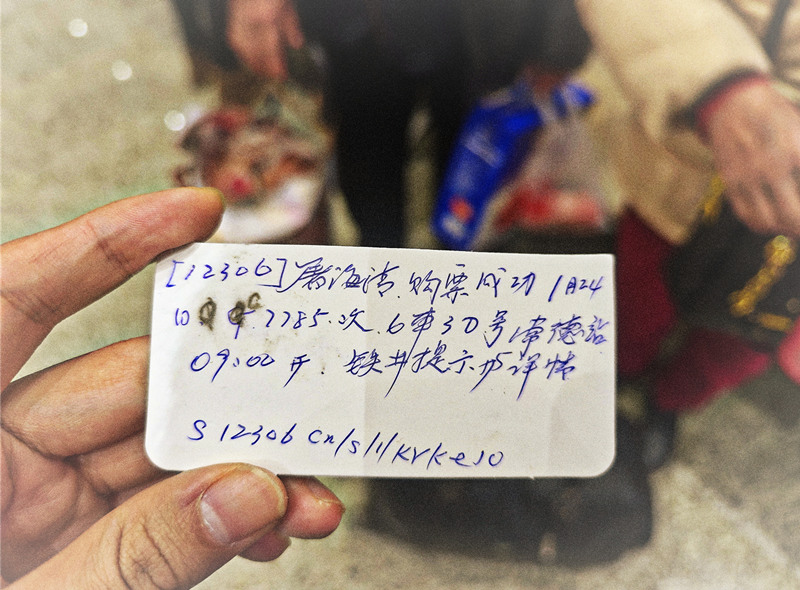 [12306]屠海清.购票成功 1月24
7785.次.6车30号常德站
09:00开. 铁井提示 详情
S 12306 cn/s/1/krkeJO